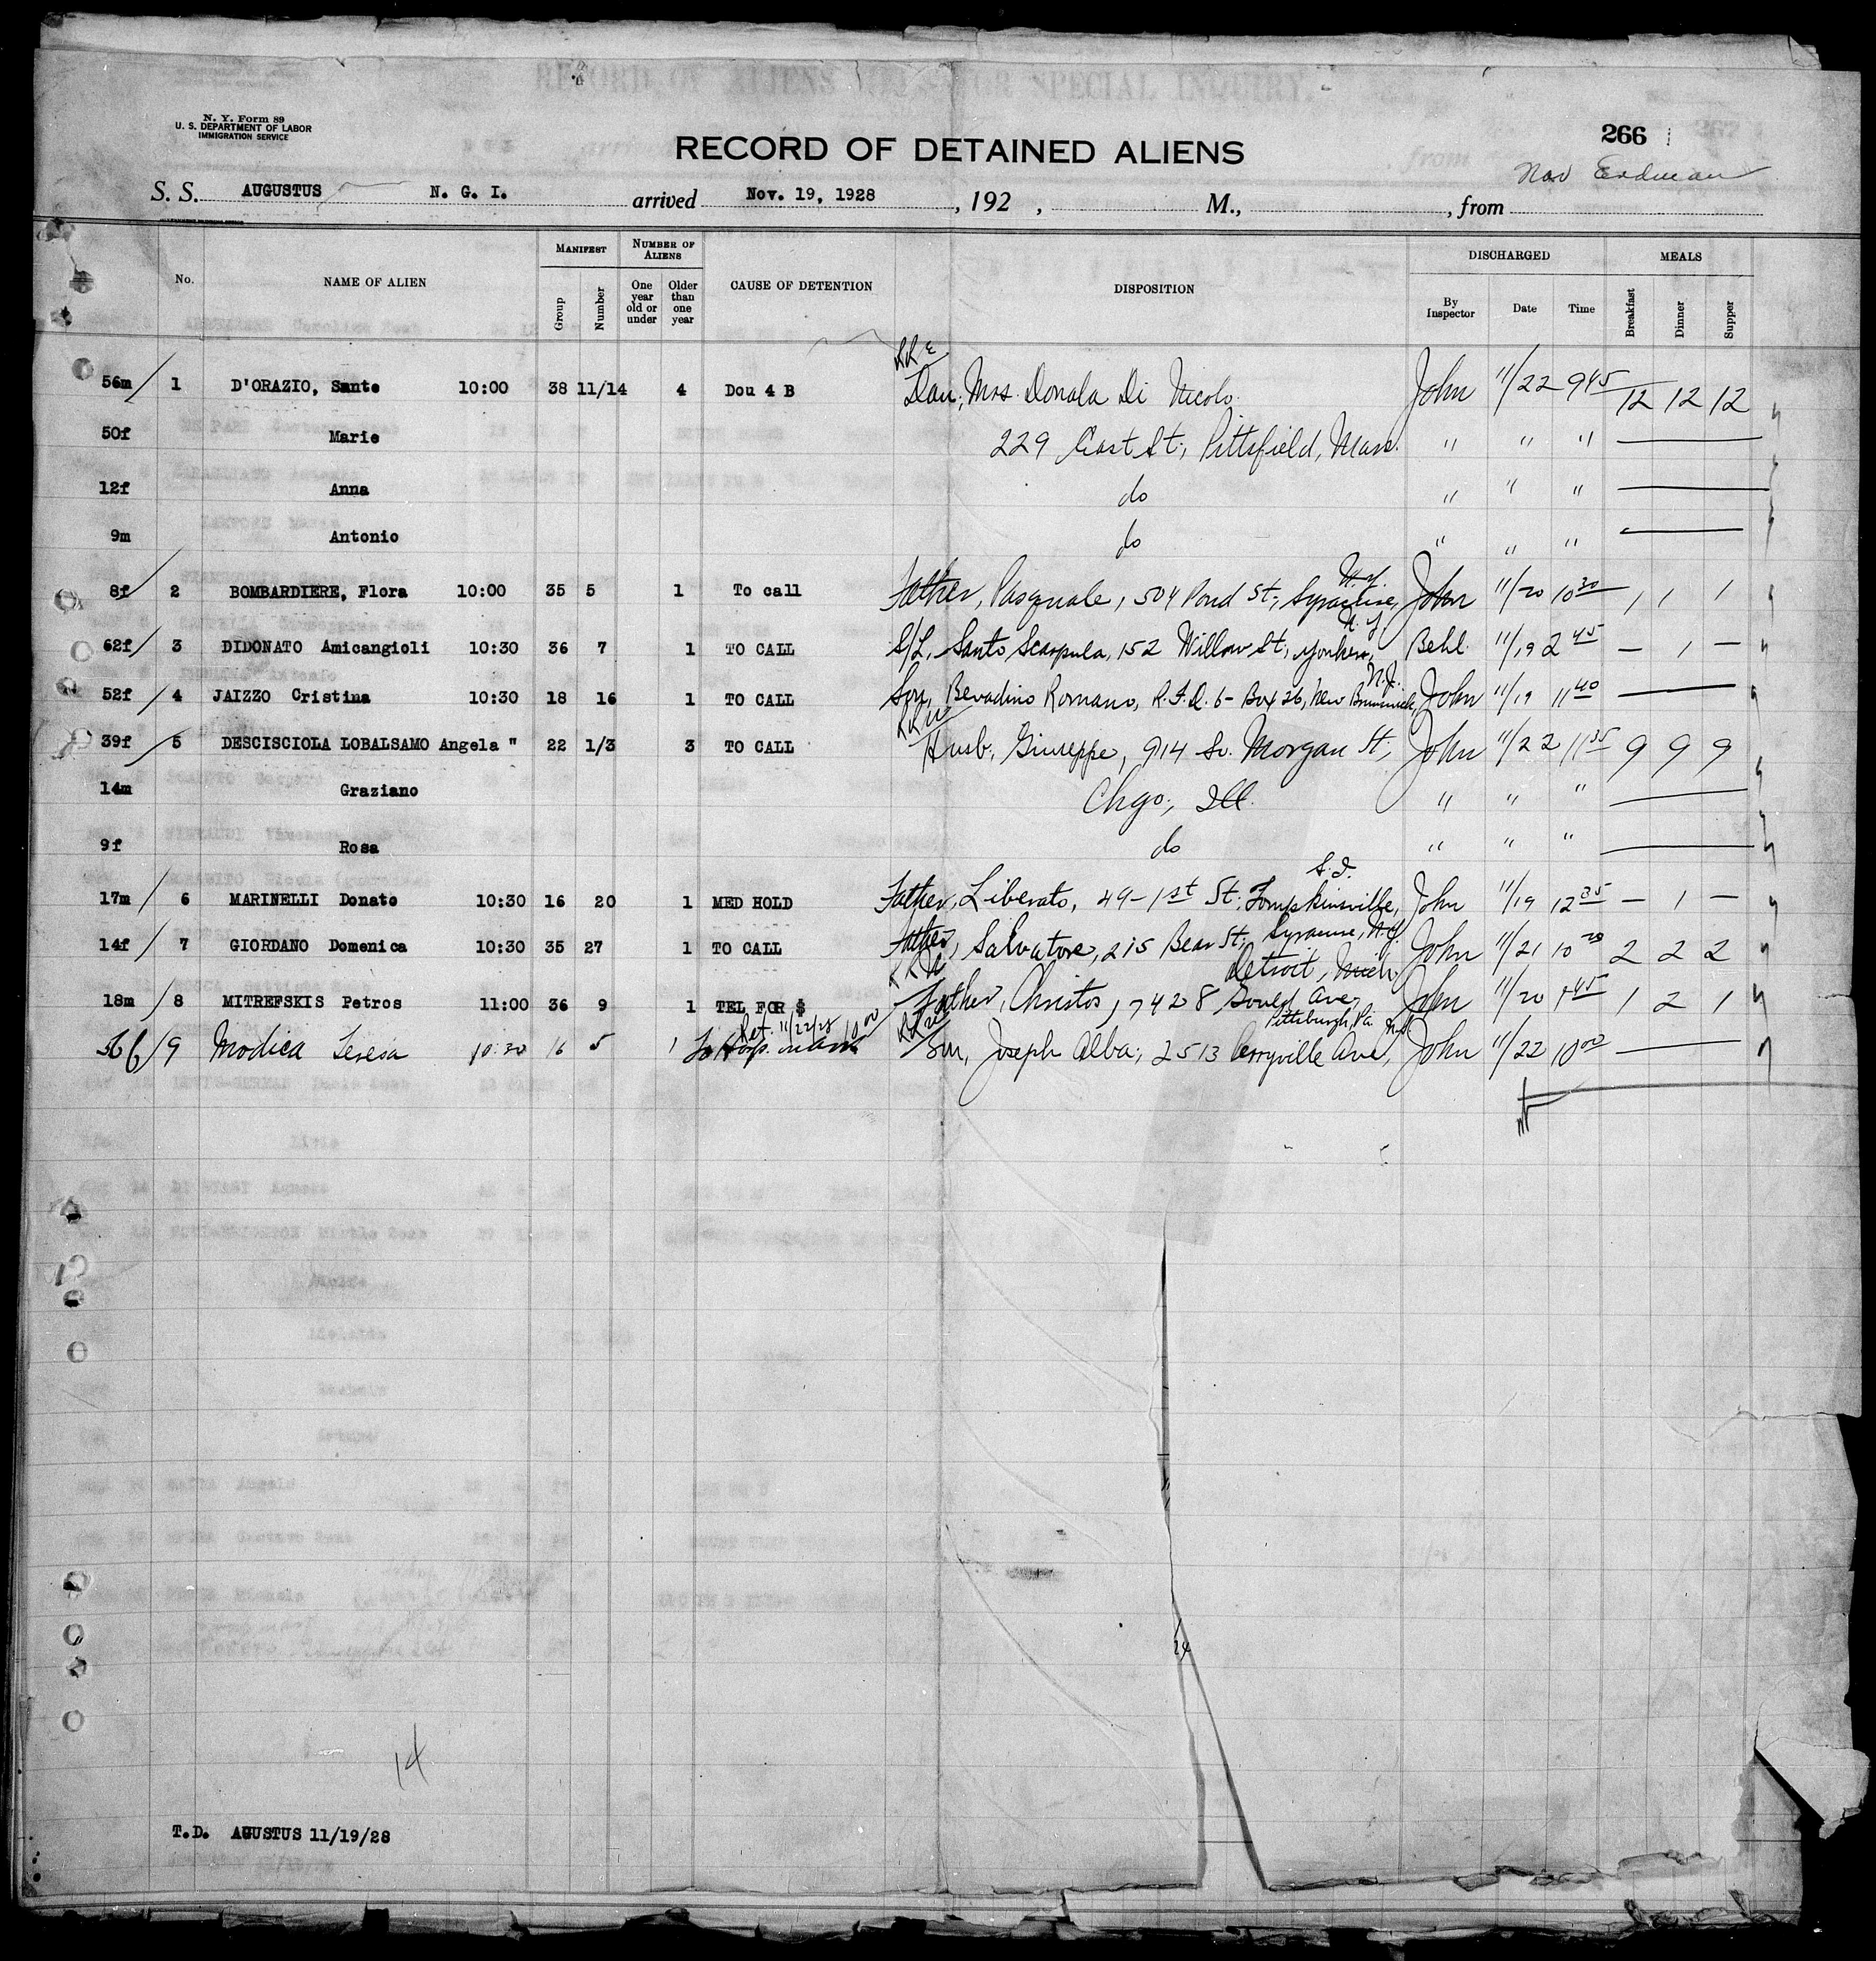 N. Y. Form 89
U. S. DEPARTMENT OF LABOR
IMMIGRATION SERVICE
RECORD OF DETAINED ALIENS
266
S. S. AUGUSTUS N. G. I. arrived Nov. 19, 1928, 192 , M., , from
MANIFEST NUMBER OF ALIENS DISCHARGED MEALS
No. NAME OF ALIEN Group Number One year old or under Older than one year CAUSE OF DETENTION DISPOSITION By Inspector Date Time Breakfast Dinner Supper
56m 1 D'ORAZIO, Sante 10:00 38 11/14 4 Dou 4 B Dau, Mrs. Donala Di Nicolo John 11/22 9 45 12 12 12
50f Marie 229 East St., Pittsfield, Mass. " " "
12f Anna do " " "
9m Antonio do " " "
N.Y.
8f 2 BOMBARDIERE, Flora 10:00 35 5 1 To call Father, Pasquale, 504 Pond St., Syracuse, John 11/20 10 30 1 1 1
N.Y.
62f 3 DIDONATO Amicangioli 10:30 36 7 1 TO CALL S/L, Santo Scarpula, 152 Willow St., Yonkers, Behl 11/19 2 45 — 1 —
N.J.
52f 4 JAIZZO Cristina 10:30 18 16 1 TO CALL Son, Bevadino Romano, R.F.D. 6 - Box 26, New Brunswick, John 11/19 11 40
39f 5 DESCISCIOLA LOBALSAMO Angela " 22 1/3 3 TO CALL Husb, Giuseppe, 914 So. Morgan St., John 11/22 11 35 9 9 9
14m Graziano Chgo., Ill. " " "
9f Rosa do " " "
S.I.
17m 6 MARINELLI Donato 10:30 16 20 1 MED HOLD Father, Liberato, 49 - 1st St. Tompkinsville, John 11/19 12 35 — 1 —
Syracuse, N.Y.
14f 7 GIORDANO Domenica 10:30 35 27 1 TO CALL Father, Salvatore, 215 Bear St., John 11/21 10 20 2 2 2
Detroit, Mich.
18m 8 MITREFSKIS Petros 11:00 36 9 1 TEL FOR $ Father, Christos, 7428 Gould Ave, John 11/20 45 1 2 1
Ret. 11/22/28 10 00 Pittsburgh, Pa. N.S.
56f 9 Modica Teresa 10:30 16 5 1 To Hosp. Son, Joseph Alba, 2513 Perryville Ave, John 11/22 10 00
14
T.D. AGUSTUS 11/19/28